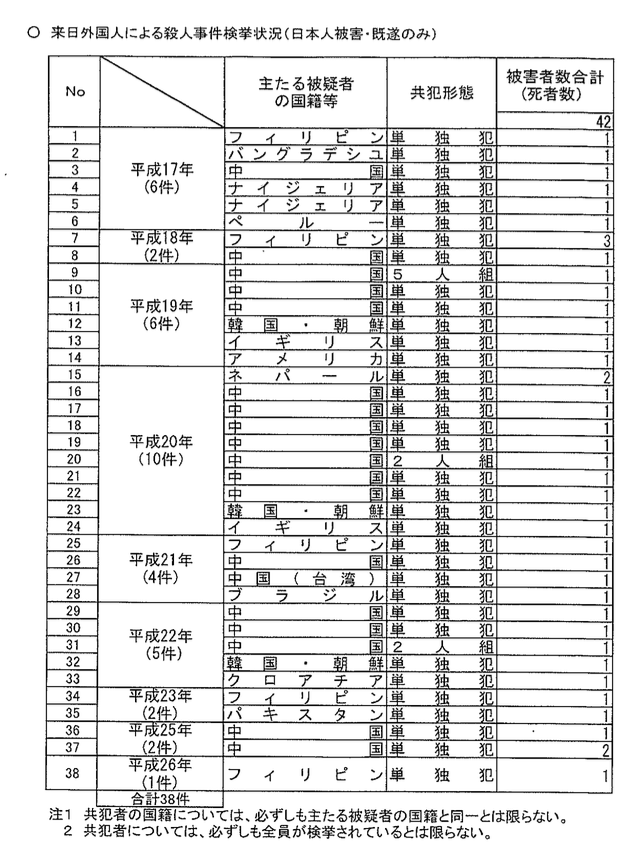 ○ 来日外国人による殺人事件検挙状況(日本人被害・既遂のみ)
No 主たる被疑者の国籍等 共犯形態 被害者数合計(死者数)
42
平成17年(6件)
1 フィリピン 単独犯 1
2 バングラデシュ 単独犯 1
3 中国 単独犯 1
4 ナイジェリア 単独犯 1
5 ナイジェリア 単独犯 1
6 ペルー 単独犯 1
平成18年(2件)
7 フィリピン 単独犯 3
8 中国 単独犯 1
平成19年(6件)
9 中国 5人組 1
10 中国 単独犯 1
11 中国 単独犯 1
12 韓国・朝鮮 単独犯 1
13 イギリス 単独犯 1
14 アメリカ 単独犯 1
平成20年(10件)
15 ネパール 単独犯 2
16 中国 単独犯 1
17 中国 単独犯 1
18 中国 単独犯 1
19 中国 単独犯 1
20 中国 2人組 1
21 中国 単独犯 1
22 中国 単独犯 1
23 韓国・朝鮮 単独犯 1
24 イギリス 単独犯 1
平成21年(4件)
25 フィリピン 単独犯 1
26 中国 単独犯 1
27 中国(台湾) 単独犯 1
28 ブラジル 単独犯 1
平成22年(5件)
29 中国 単独犯 1
30 中国 単独犯 1
31 中国 2人組 1
32 韓国・朝鮮 単独犯 1
33 クロアチア 単独犯 1
平成23年(2件)
34 フィリピン 単独犯 1
35 パキスタン 単独犯 1
平成25年(2件)
36 中国 単独犯 1
37 中国 単独犯 2
平成26年(1件)
38 フィリピン 単独犯 1
合計38件
注1 共犯者の国籍については、必ずしも主たる被疑者の国籍と同一とは限らない。
2 共犯者については、必ずしも全員が検挙されているとは限らない。